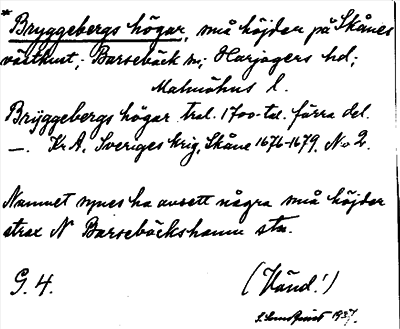 * Bryggebergs högar, små höjder på Skånes
västkust; Barsebäck sn; Harjagers hd;
Malmöhus l.
Bryggebergs högar trol. 1700-tal. förra del.
—. Kr A, Sveriges krig, Skåne 1676-1679, No 2.
Namnet synes ha avsett några små höjder
strax N Barsebäckshamn stn.
G. 4. (Vänd!)
1937.